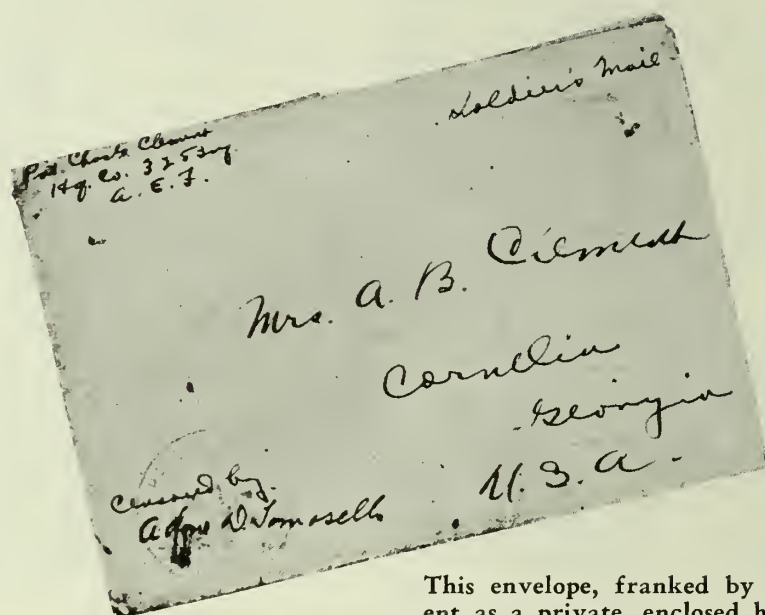 Pvt. Clements
Hq. Co. 325 Inf.
A. E. F.
Soldier's Mail
Mrs. A. B.
Cornelia
Georgia
U. S. A.
Censored by
D. Tomasello
This envelope, franked by
ent as a private, enclosed h